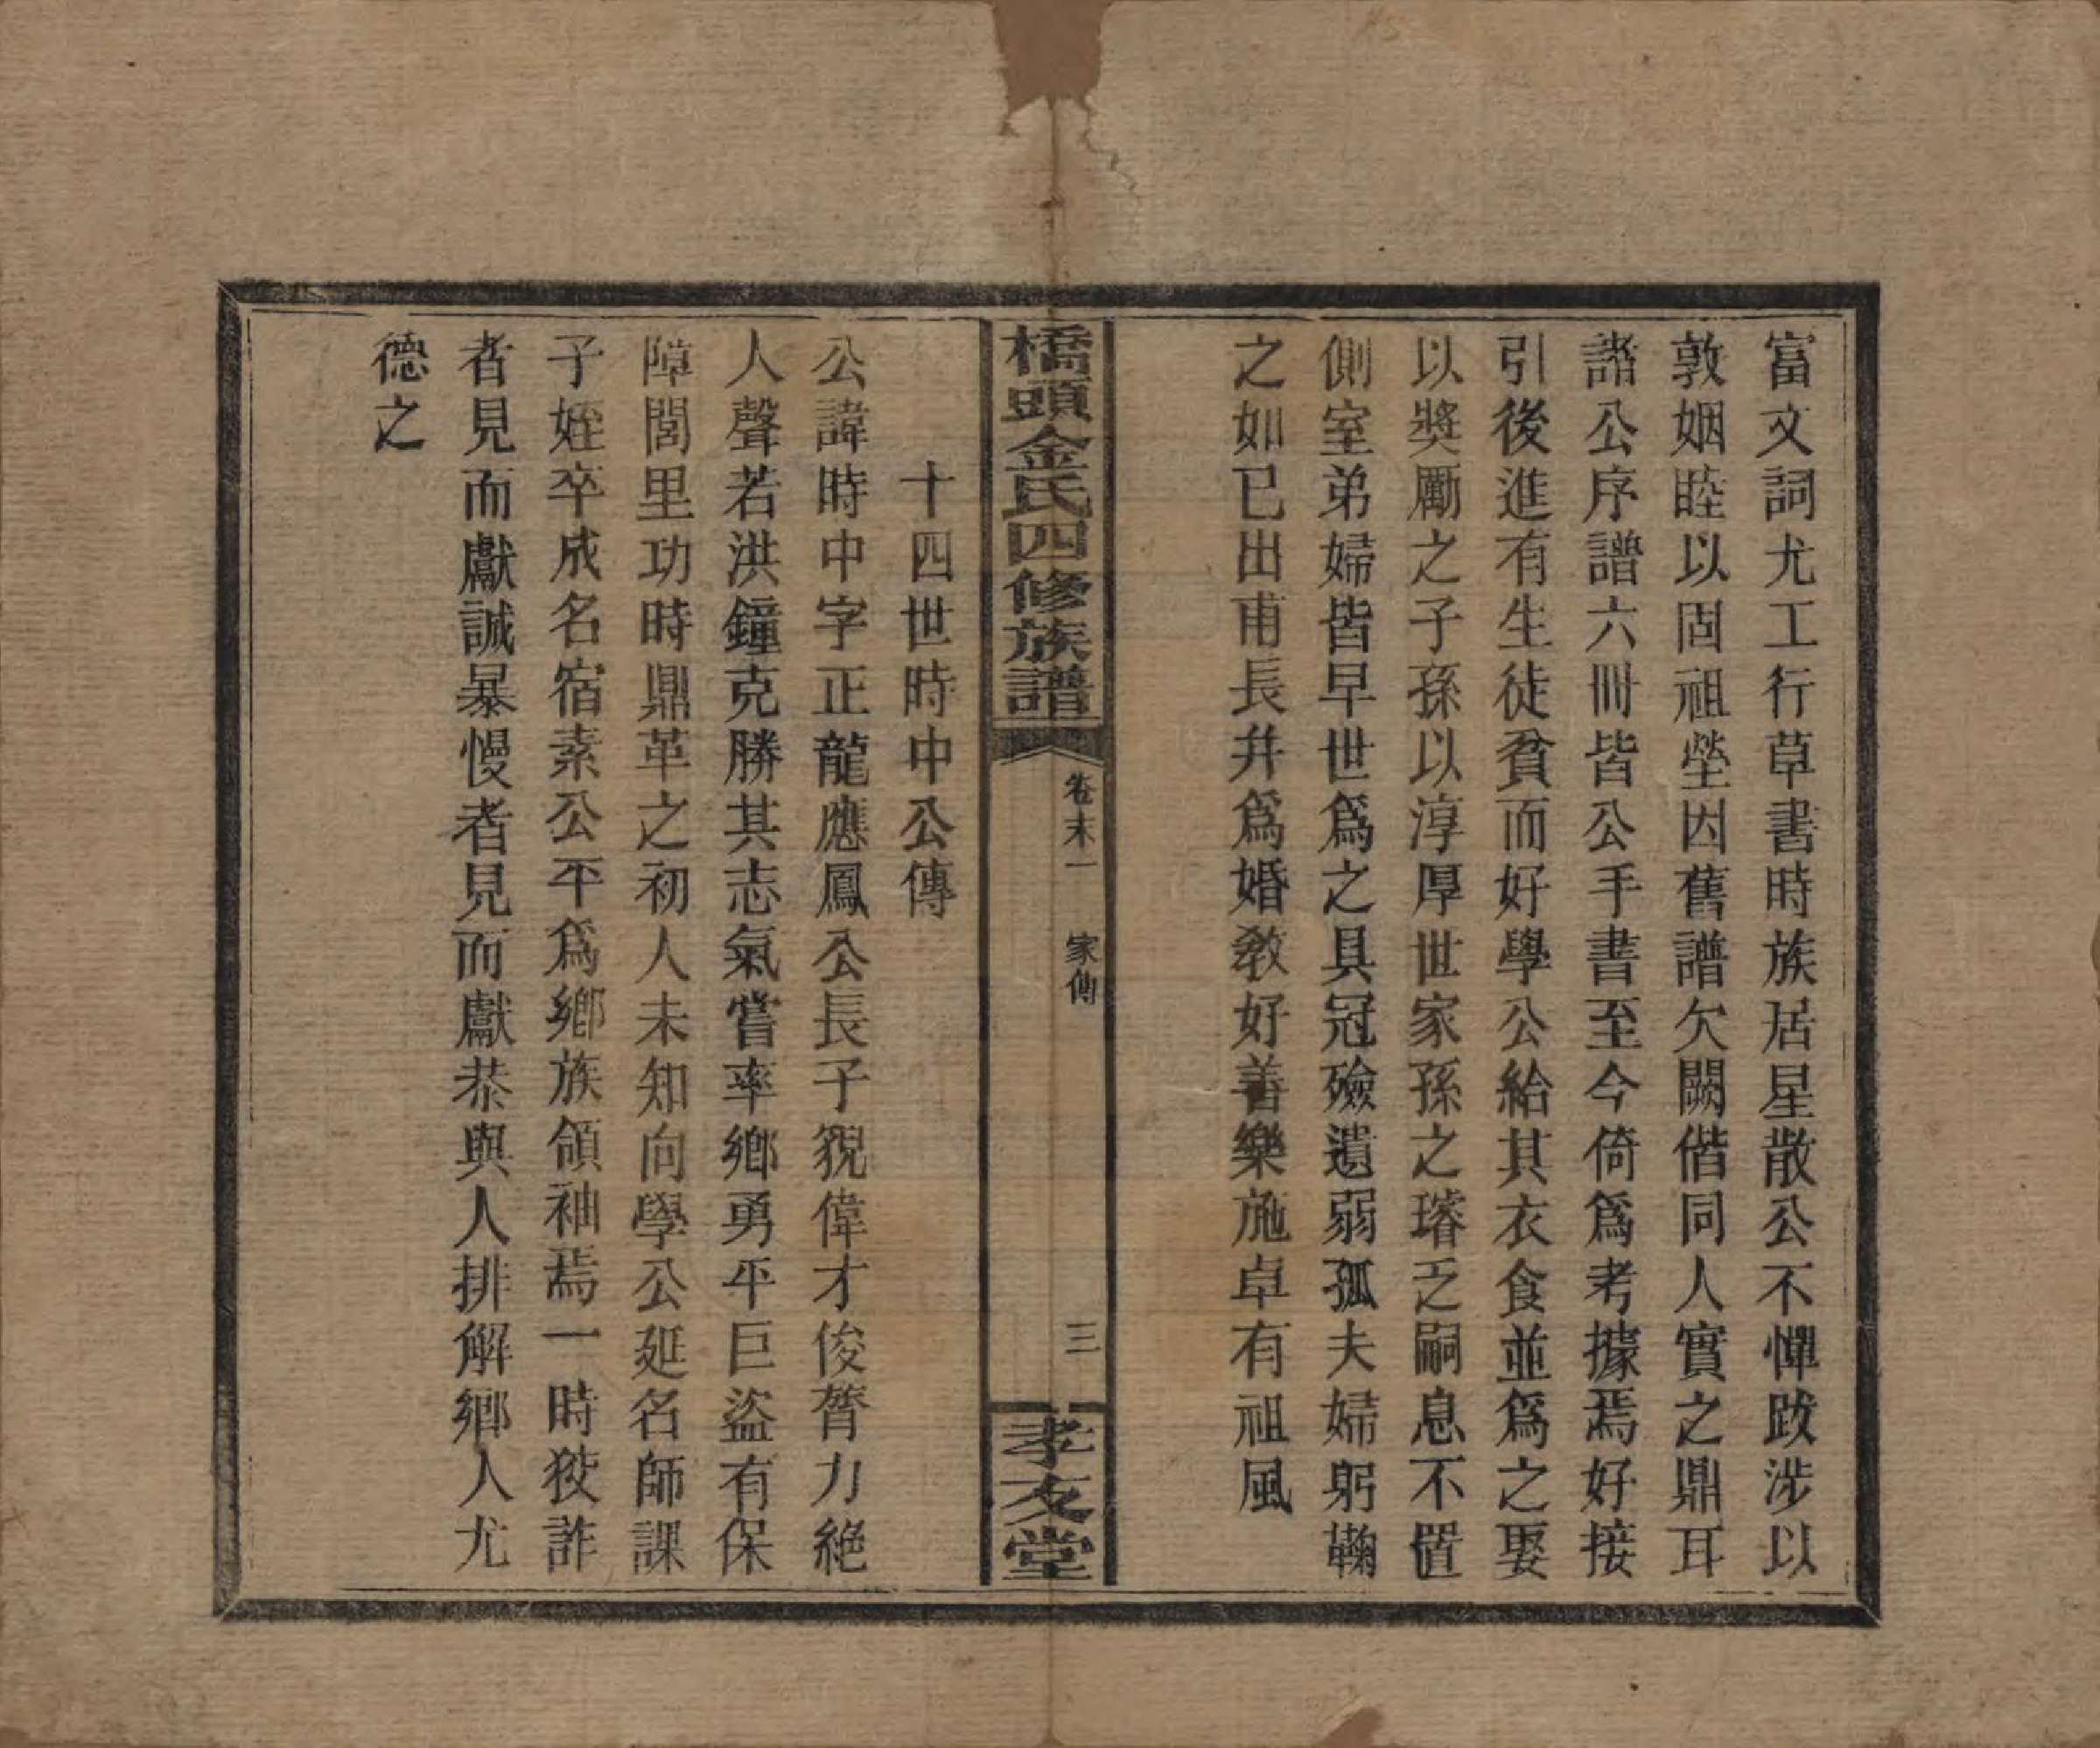 富文詞尤工行草書時族居星散公不憚跋涉以
敦姻睦以固祖塋因舊譜欠闕偕同人實之鼎耳
諧公序譜六冊皆公手書至今倚爲考據焉好接
引後進有生徒貧而好學公給其衣食並爲之娶
以獎勵之子孫以淳厚世家孫之璿乏嗣息不置
側室弟婦皆早世爲之具冠殮遺弱孤夫婦躬鞠
之如已出甫長幷爲婚敎好善樂施卓有祖風
橋頭金氏四修族譜
卷末一 家傳
三
孝友堂
十四世時中公傳
公諱時中字正龍應鳳公長子貌偉才俊膂力絕
人聲若洪鐘克勝其志氣嘗率鄉勇平巨盜有保
障閭里功時鼎革之初人未知向學公延名師課
子姪卒成名宿素公平爲鄉族領袖焉一時狡詐
者見而獻誠暴慢者見而獻恭與人排解鄉人尤
德之